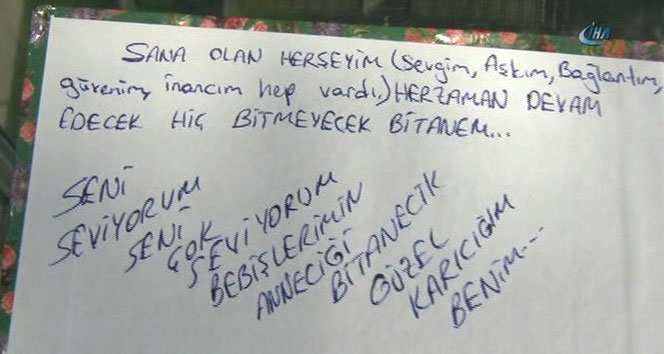 SANA OLAN HERŞEYİM (Sevgim, Aşkım, Bağlantım,
güvenim, inancım hep vardı,) HERZAMAN DEVAM
EDECEK HİÇ BİTMEYECEK BİTANEM...
SENİ
SEVİYORUM
SENİ
ÇOK
SEVİYORUM
BEBİŞLERİMİN
ANNECİĞİ
BİTANECİK
GÜZEL
KARICIĞIM
BENİM...
İHA